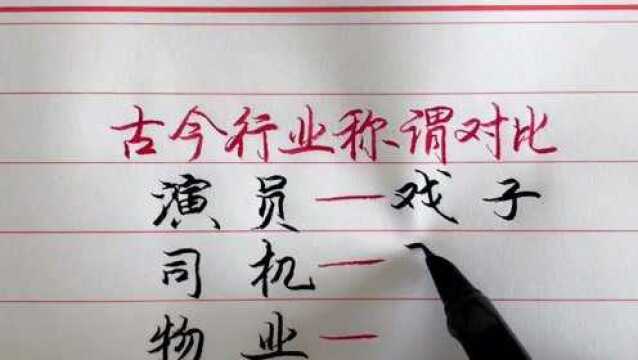 古今行业称谓对比
演员—戏子
司机—
物业—